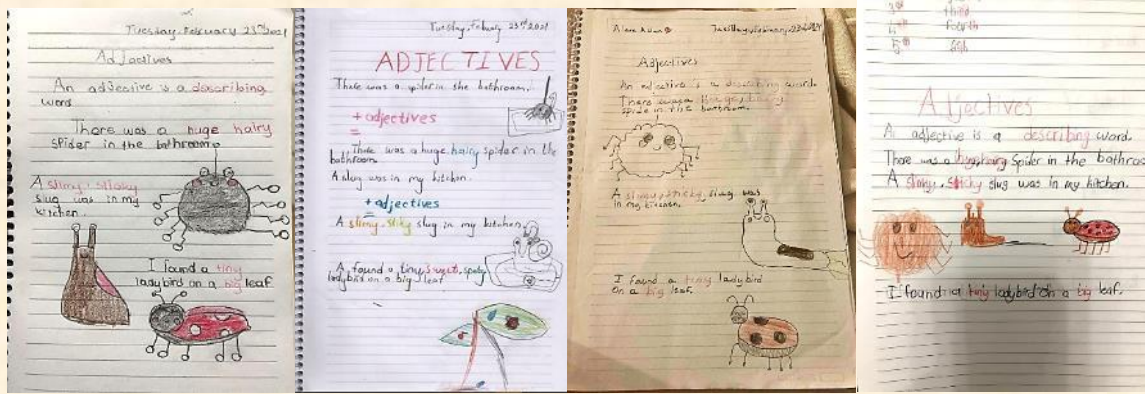 Tuesday, February 23rd 2021
Adjectives
An adjective is a describing
word
There was a huge hairy
spider in the bathroom.
A slimy, sticky
slug was in my
kitchen.
I found a tiny
ladybird on a big leaf
Tuesday, febuary 23rd 2021
ADJECTIVES
There was a spider in the bathroom.
+ adjectives
=
There was a huge hairy spider in the
bathroom.
A slug was in my kitchen.
+ adjectives
=
A slimy, stiky slug in my kitchen.
A found a tiny sweet, spoty
ladybird on a big leaf
Tuesday, February, 23rd 2021
Adjectives
An adjective is a describing word
There was a huge, hairy
spider in the bathroom.
A slimy, sticky, slug was
in my kitchen.
I found a tiny ladybird
on a big leaf.
3rd third
4th fourth
5th
Adjectives
An adjective is a describing word.
There was a huge, hairy spider in the bathroo
A slimy, sticky slug was in my kitchen.
I found a tiny ladybird on a big leaf.